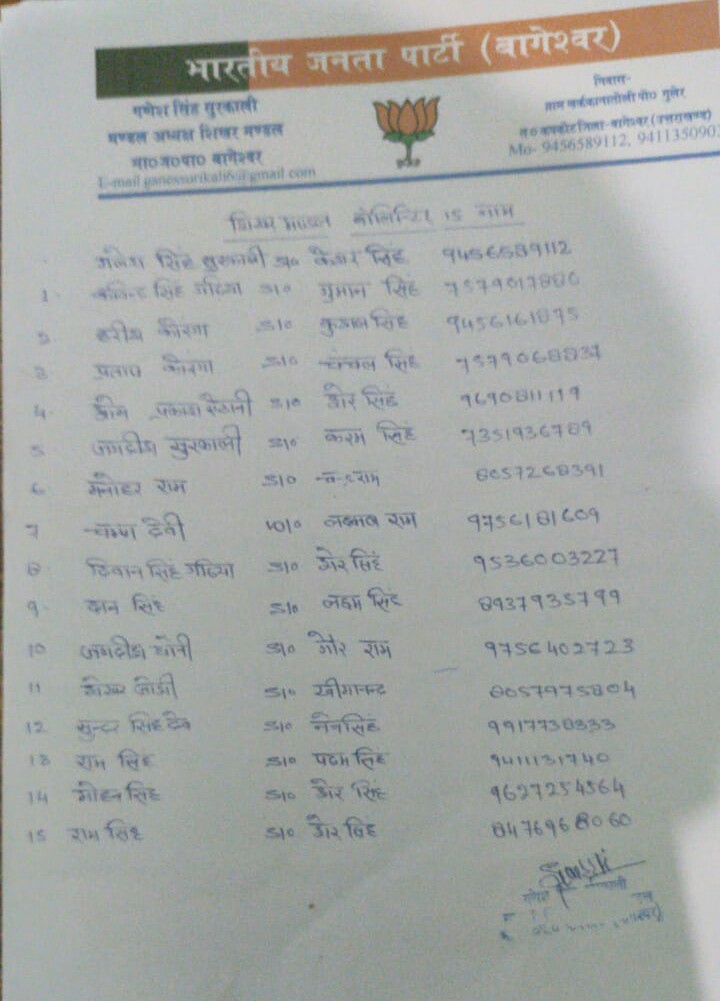 भारतीय जनता पार्टी (बागेश्वर)
गणेश सिंह सुरकाली
मण्डल अध्यक्ष शिखर मण्डल
भा०ज०पा० बागेश्वर
निवास-
त० कपकोट जिला-बागेश्वर (उत्तराखण्ड)
Mo- 9456589112, 941135090
शिखर मण्डल वोलिन्टिर 15 नाम
गणेश सिंह सुरकाली S/o केशर सिंह 9456589112
1. सिंह गढिया S/o गुमान सिंह 7579017880
2 हरीश कोरंगा S/o कुशल सिंह 9456161895
3 प्रताप कोरंगा S/o चंचल सिंह 7579068837
4. प्रकाश S/o शेर सिंह 9690811119
5 जगदीश सुरकाली S/o करम सिंह 7351936789
6 मनोहर राम S/o राम 8057268391
7 चम्पा देवी W/o राम 9756181609
8 दिवान सिंह गढिया S/o शेर सिंह 9536003227
9. दान सिंह S/o सिंह 8937935799
10 जगदीश S/o राम 9756402723
11 शेखर जोशी S/o 8057975804
12 सुन्दर सिंह देव S/o सिंह 9917738333
13 राम सिंह S/o पदम सिंह 9411131740
14 मोहन सिंह S/o शेर सिंह 9627254564
15 राम सिंह S/o शेर सिंह 8476968060